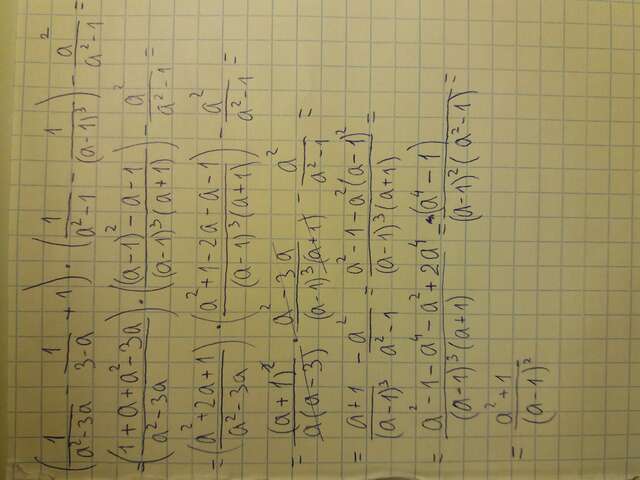 (1/(a²-3a) - 1/(3-a) + 1) · (1/(a²-1) - 1/(a-1)³) - a²/(a²-1) =
= ((1+a+a²-3a)/(a²-3a)) · (((a-1)²-a-1)/((a-1)³(a+1))) - a²/(a²-1) =
= ((a²+2a+1)/(a²-3a)) · ((a²+1-2a-a-1)/((a-1)³(a+1))) - a²/(a²-1) =
= (a+1)²/(a(a-3)) · (a²-3a)/((a-1)³(a+1)) - a²/(a²-1) =
= (a+1)/(a-1)³ - a²/(a²-1) = (a²-1-a²(a-1)²)/((a-1)³(a+1)) =
= (a²-1-a⁴-a²+2a⁴)/((a-1)³(a+1)) = (a⁴-1)/((a-1)²(a²-1)) =
= (a²+1)/(a-1)²